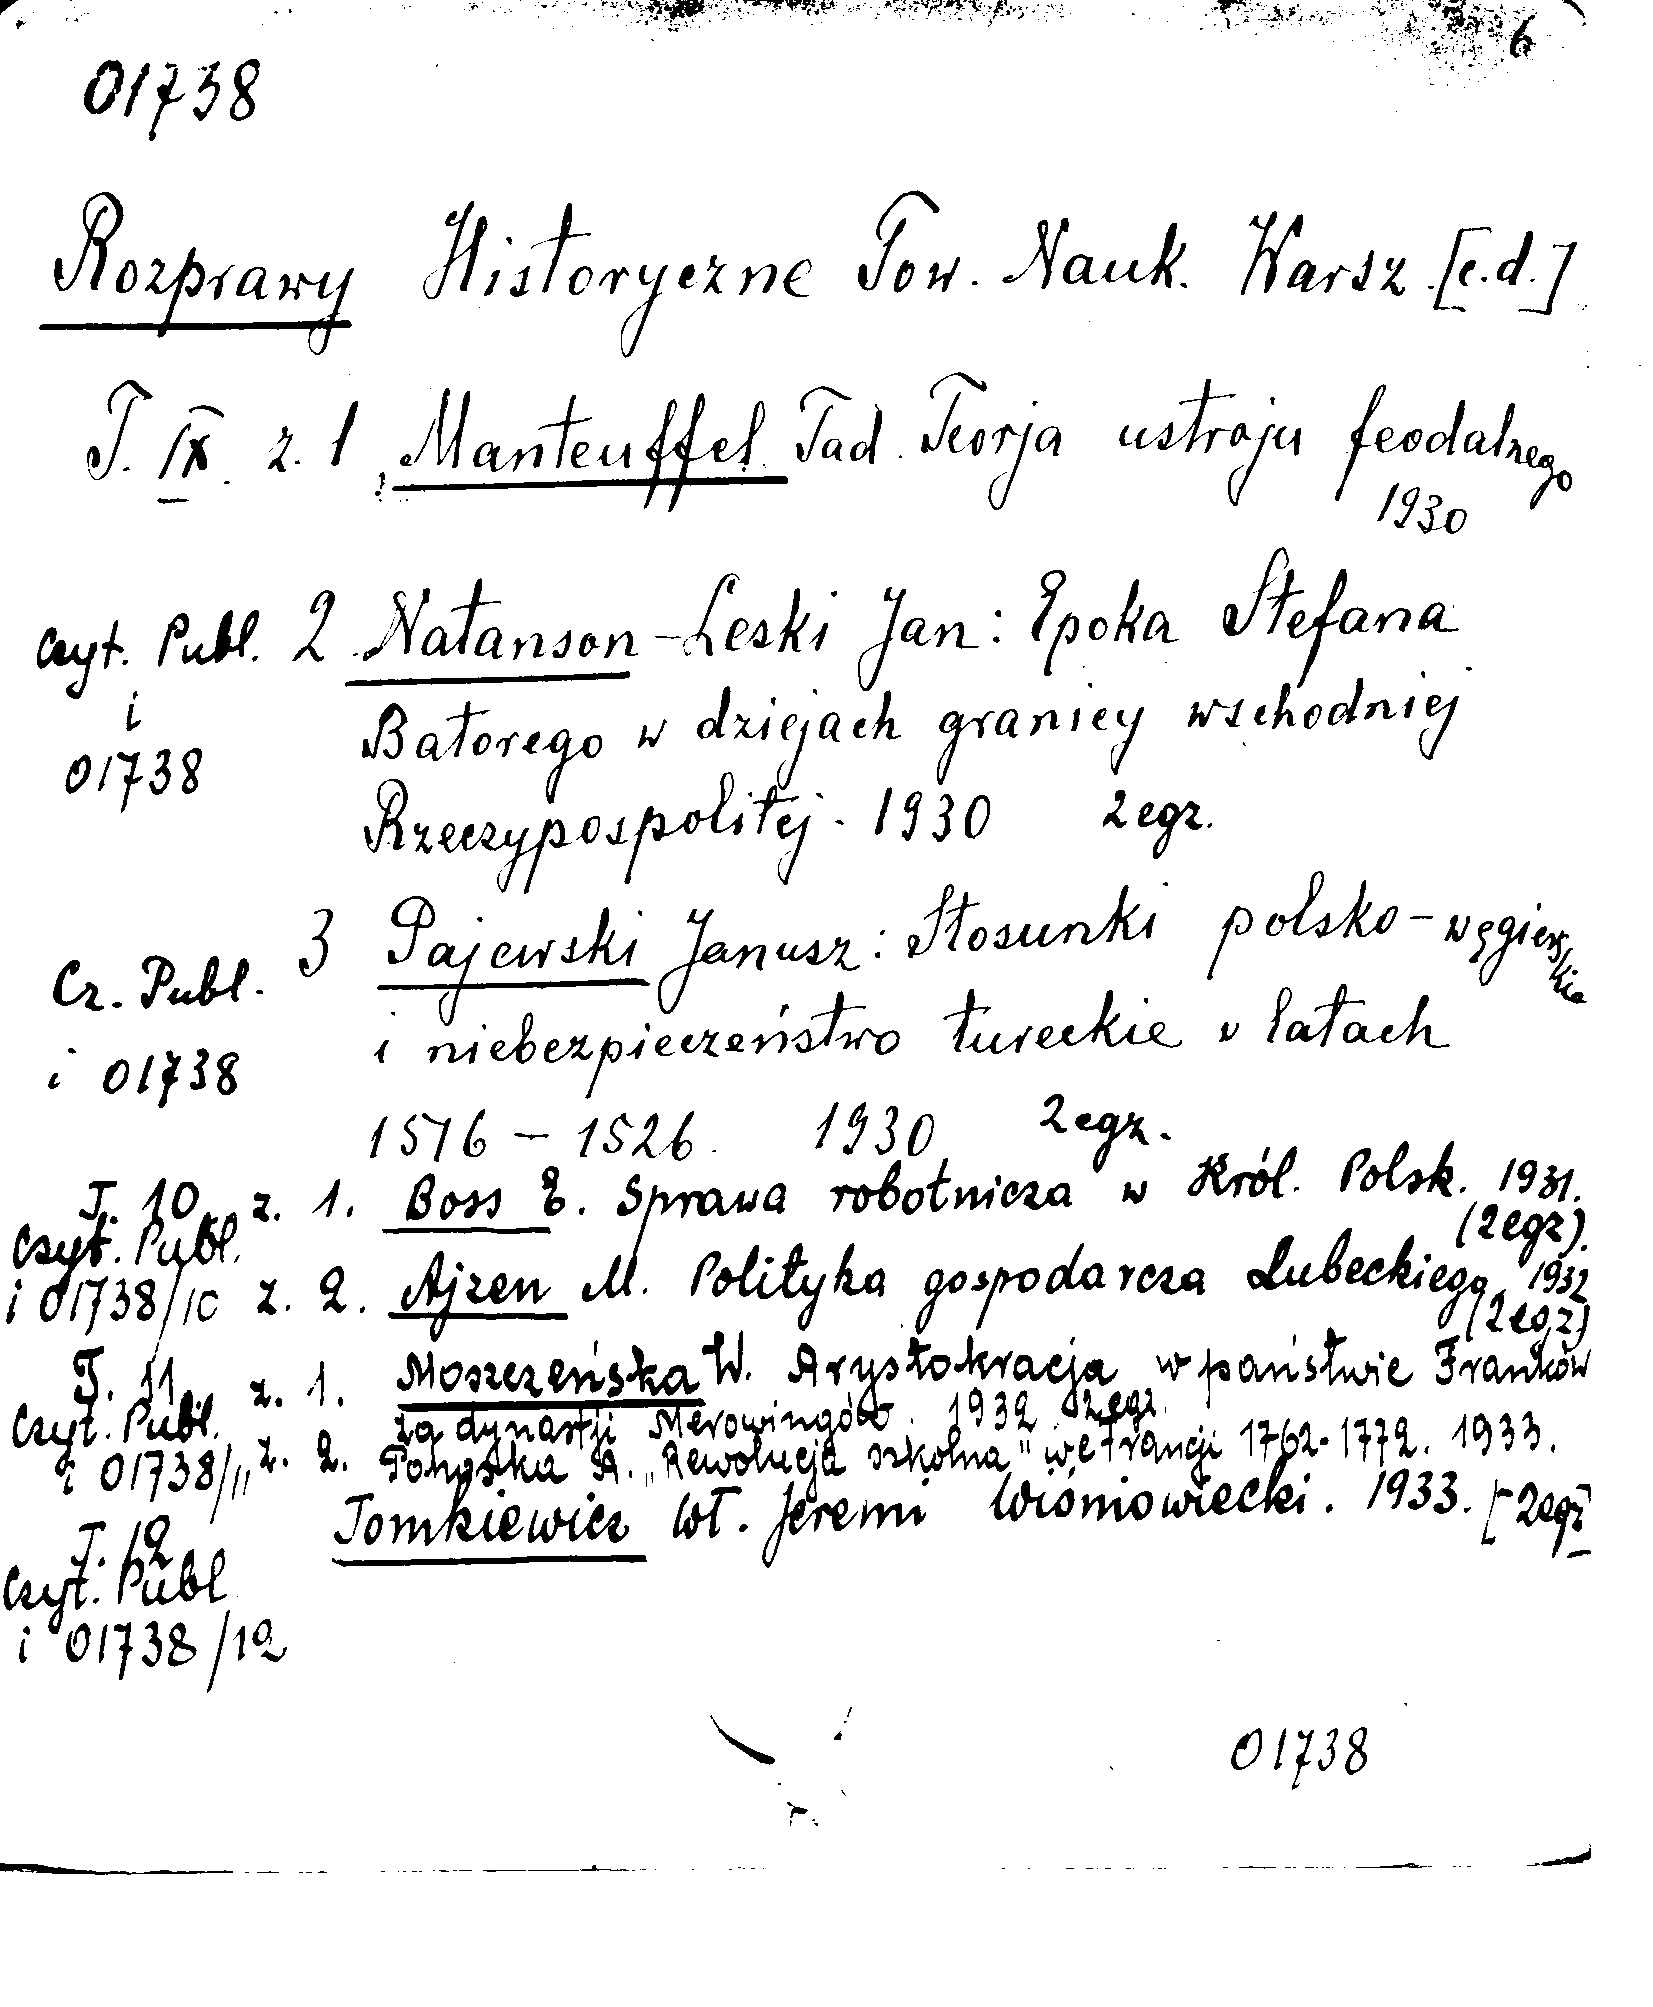 6
01738
Rozprawy Historyczne Tow. Nauk. Warsz. [c.d.]
T. IX. z. 1 Manteuffel Tad. Teorja ustroju feodalnego
1930
Czyt. Publ. 2 Natanson-Leski Jan: Epoka Stefana
i
Batorego w dziejach granicy wschodniej
01738
Rzeczypospolitej. 1930 2 egz.
3 Pajewski Janusz: Stosunki polsko-węgierskie
Cz. Publ.
i niebezpieczeństwo tureckie w latach
i 01738
1516 - 1526. 1930 2 egz.
T. 10 z. 1. Boss E. Sprawa robotnicza w Król. Polsk. 1931.
Czyt. Publ. (2 egz).
i 01738/10 z. 2. Ajzen M. Polityka gospodarcza Lubeckiego. 1932
(2 egz)
T. 11 z. 1. Moszczeńska W. Arystokracja w państwie Franków
Czyt. Publ. za dynastji Merowingów. 1932 2 egz.
i 01738/11 z. 2. Pohoska A. "Rewolucja szkolna" we Francji 1762-1772. 1933.
T. 12 Tomkiewicz Wł. Jeremi Wiśniowiecki. 1933. [2 egz
Czyt. Publ
i 01738/12
01738